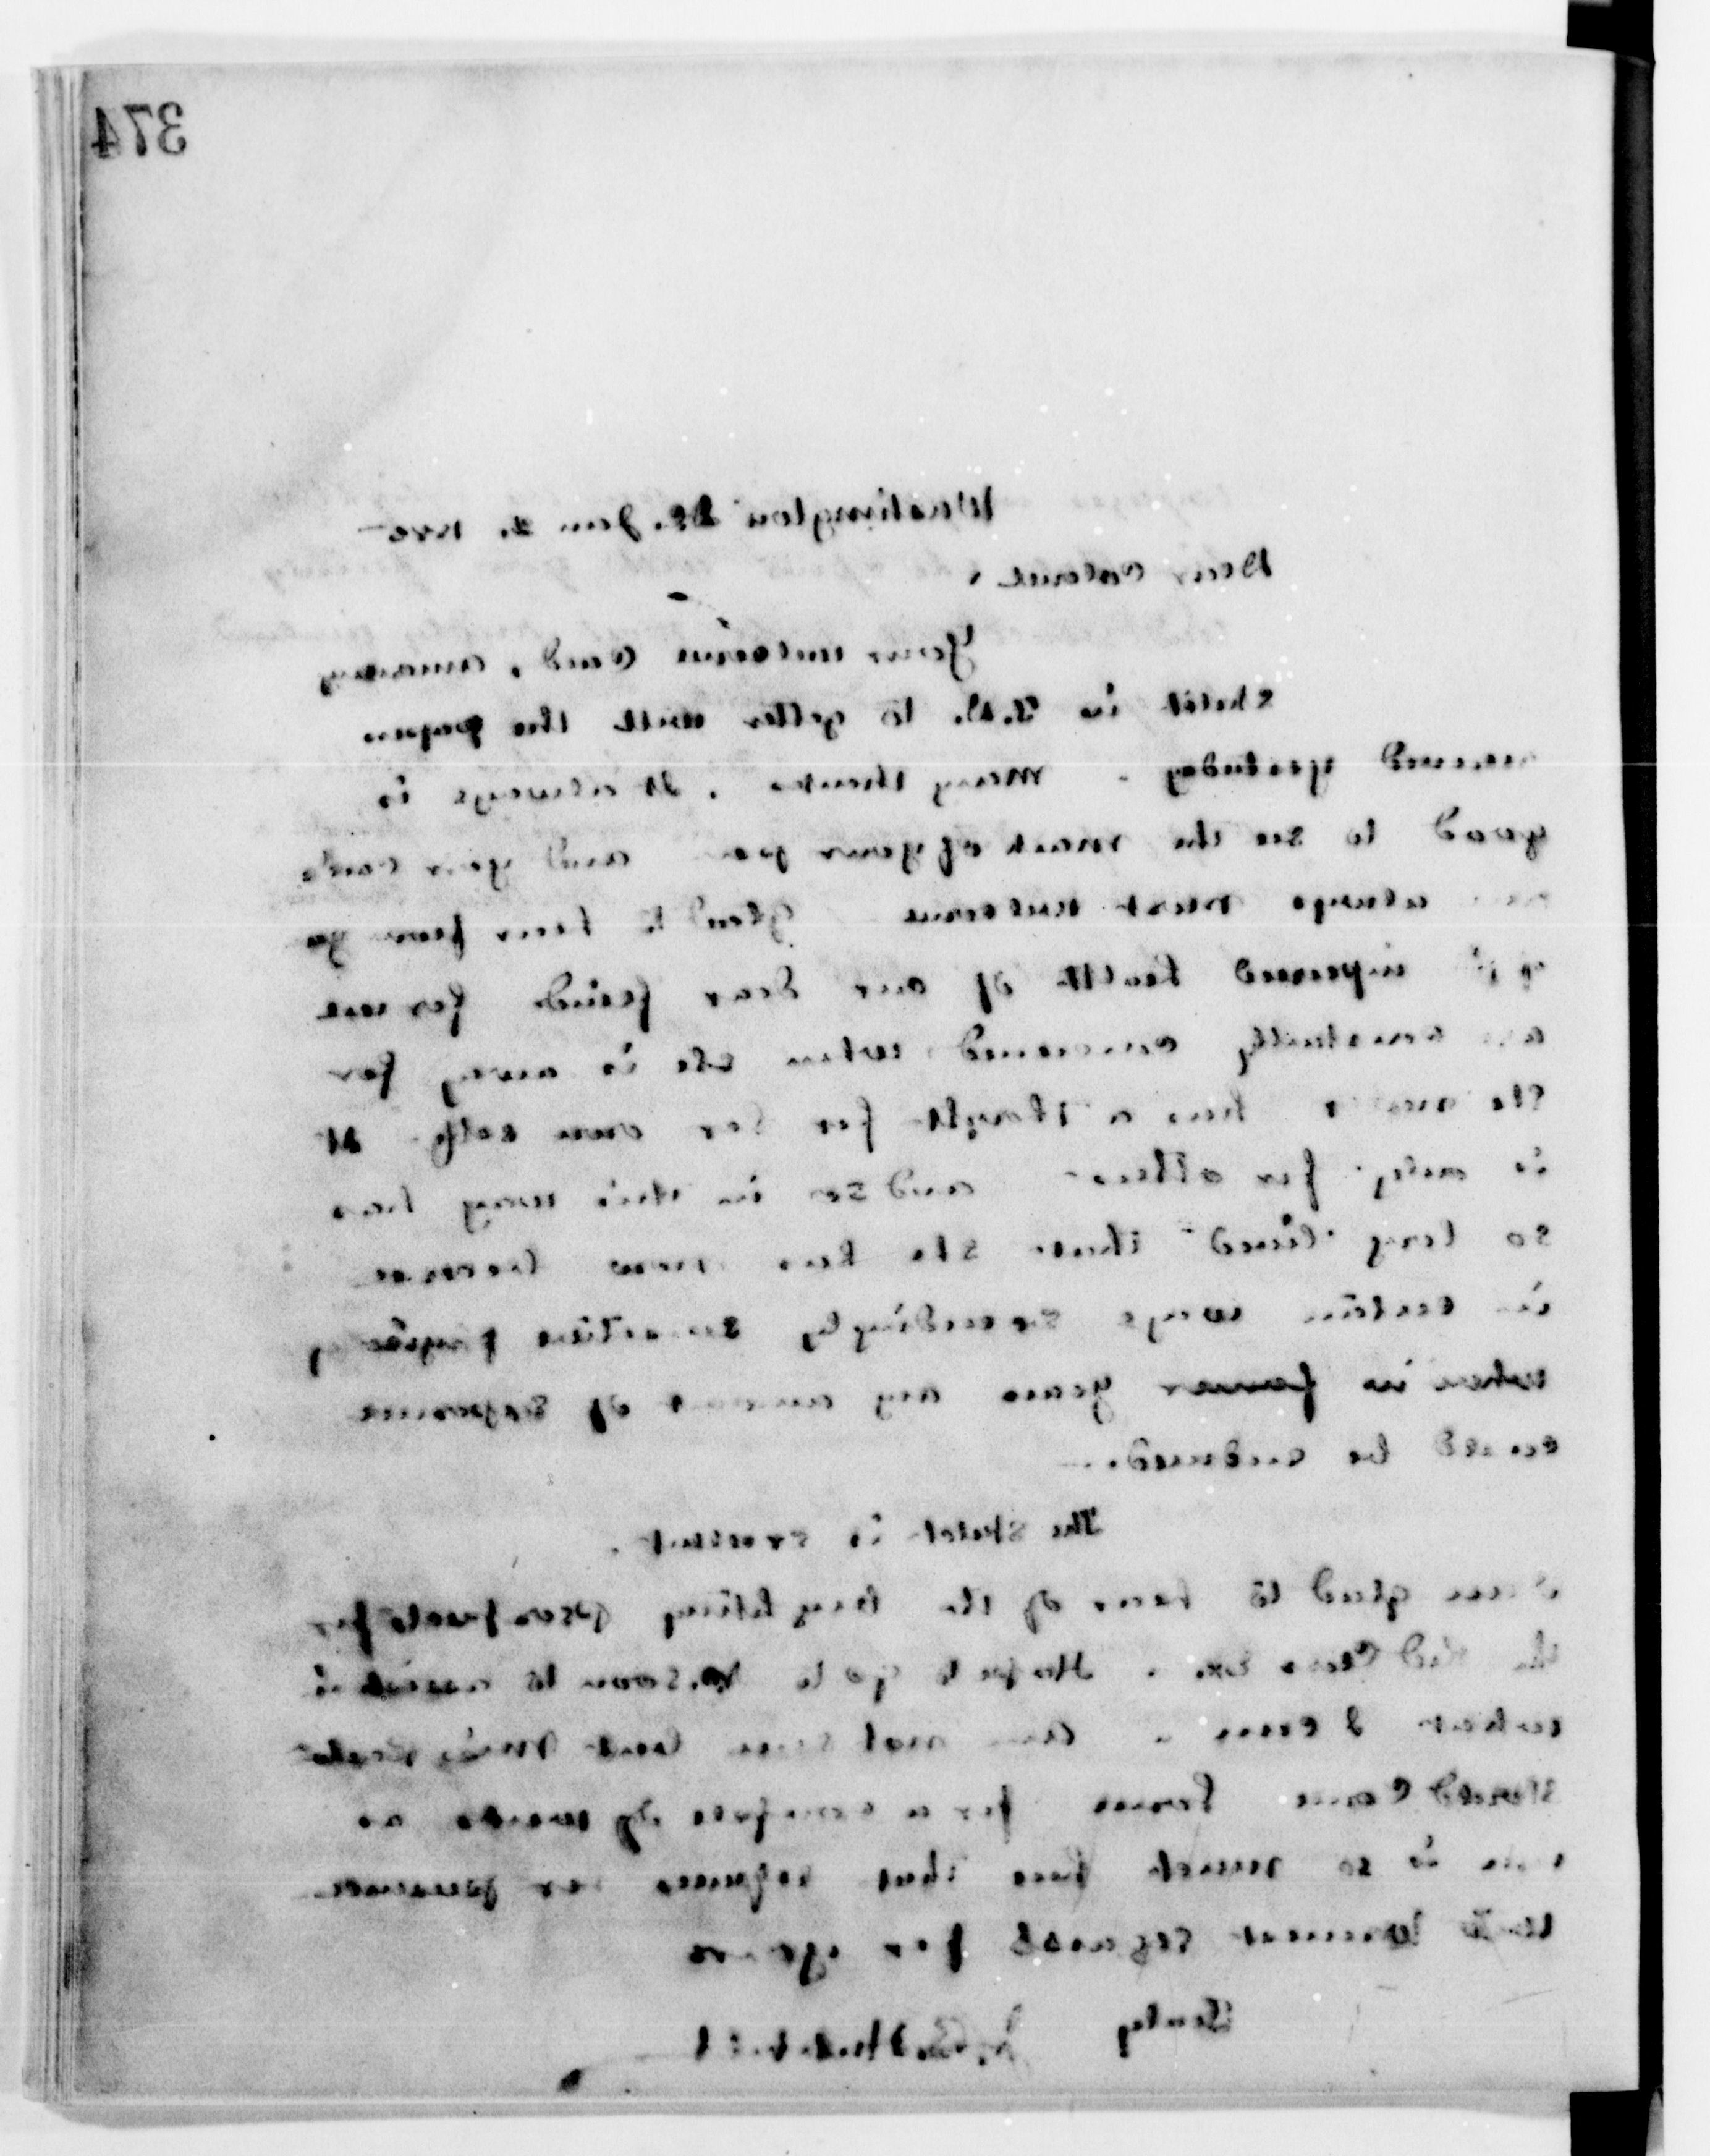 374
Washington DC. Jan 2. 1890
Dear Colonel,
Your welcome card, among
sketch in to gether with the papers
received yesterday. Many thanks. It always is
good to see the mark of your pen and your cards
are always most welcome Glad to hear from you
of improved health of our dear friend for we
are constantly concerned when she is away for
she never has a thought for her own self. It
is only for others and so in this way has
so long lived that she has now become
in certain ways exceedingly sensitive
when in former years any amount of exposure
could be endured.
The sketch is excellent.
I am glad to hear of the brightening prospects for
the Red Cross Hope to go to soon to assist in
what I can. Am not sure but
should come home for a couple of weeks as
there is so much here that requires her presence
With warmest regards for yours
Truly